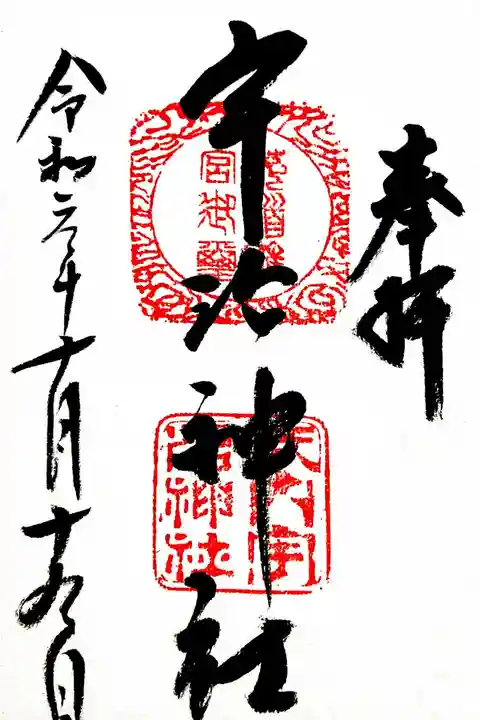 奉拝
宇治神社
式内宇
治神社
令和六年十月十日